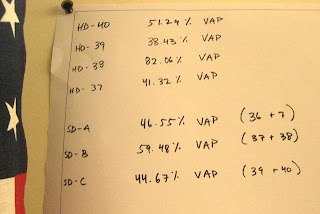 HD-40 51.29% VAP
HD-39 38.43% VAP
HD-38 82.06% VAP
HD-37 41.32% VAP
SD-A 46.55% VAP (36+7)
SD-B 59.48% VAP (37+38)
SD-C 44.67% VAP (39+40)